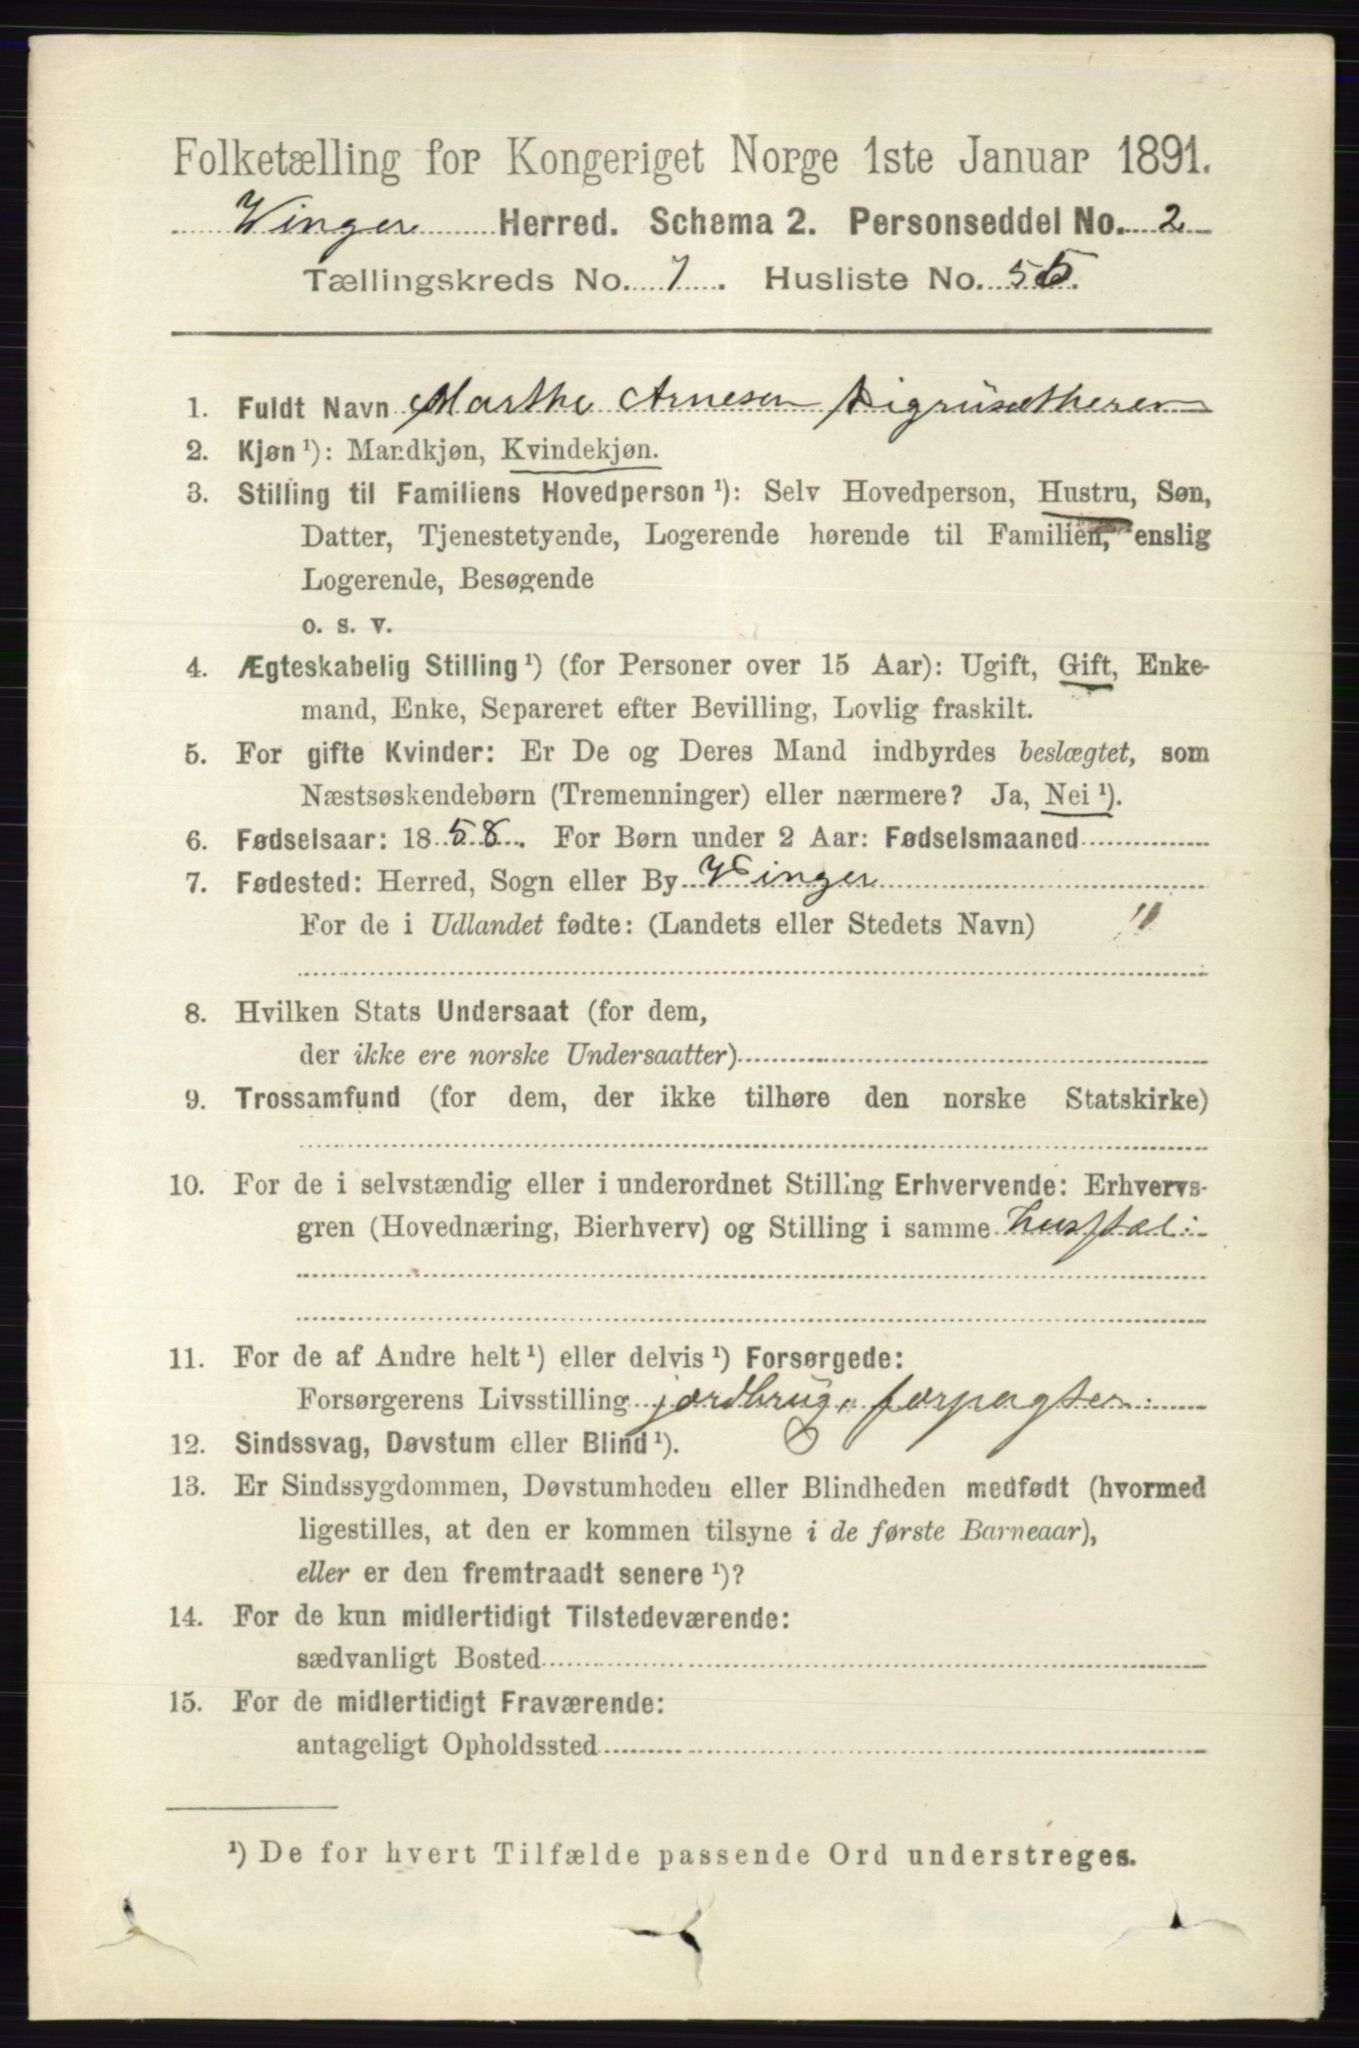 Folketælling for Kongeriget Norge 1ste Januar 1891.
Vinger Herred. Schema 2. Personseddel No. 2
Tællingskreds No. 7. Husliste No. 55.
1. Fuldt Navn Marthe Arnesen Digrusætheren
2. Kjøn ¹): Mandkjøn, Kvindekjøn.
3. Stilling til Familiens Hovedperson ¹): Selv Hovedperson, Hustru, Søn,
Datter, Tjenestetyende, Logerende hørende til Familien, enslig
Logerende, Besøgende
o. s. v.
4. Ægteskabelig Stilling ¹) (for Personer over 15 Aar): Ugift, Gift, Enke-
mand, Enke, Separeret efter Bevilling, Lovlig fraskilt.
5. For gifte Kvinder: Er De og Deres Mand indbyrdes beslægtet, som
Næstsøskendebørn (Tremenninger) eller nærmere? Ja, Nei ¹).
6. Fødselsaar: 1858. For Børn under 2 Aar: Fødselsmaaned
7. Fødested: Herred, Sogn eller By Vinger
For de i Udlandet fødte: (Landets eller Stedets Navn) "
8. Hvilken Stats Undersaat (for dem,
der ikke ere norske Undersaatter)
9. Trossamfund (for dem, der ikke tilhøre den norske Statskirke)
10. For de i selvstændig eller i underordnet Stilling Erhvervende: Erhvervs-
gren (Hovednæring, Bierhverv) og Stilling i samme husstel
11. For de af Andre helt ¹) eller delvis ¹) Forsørgede:
Forsørgerens Livsstilling jordbrug, forpagter
12. Sindssvag, Døvstum eller Blind ¹).
13. Er Sindssygdommen, Døvstumheden eller Blindheden medfødt (hvormed
ligestilles, at den er kommen tilsyne i de første Barneaar),
eller er den fremtraadt senere ¹)?
14. For de kun midlertidigt Tilstedeværende:
sædvanligt Bosted
15. For de midlertidigt Fraværende:
antageligt Opholdssted
¹) De for hvert Tilfælde passende Ord understreges.